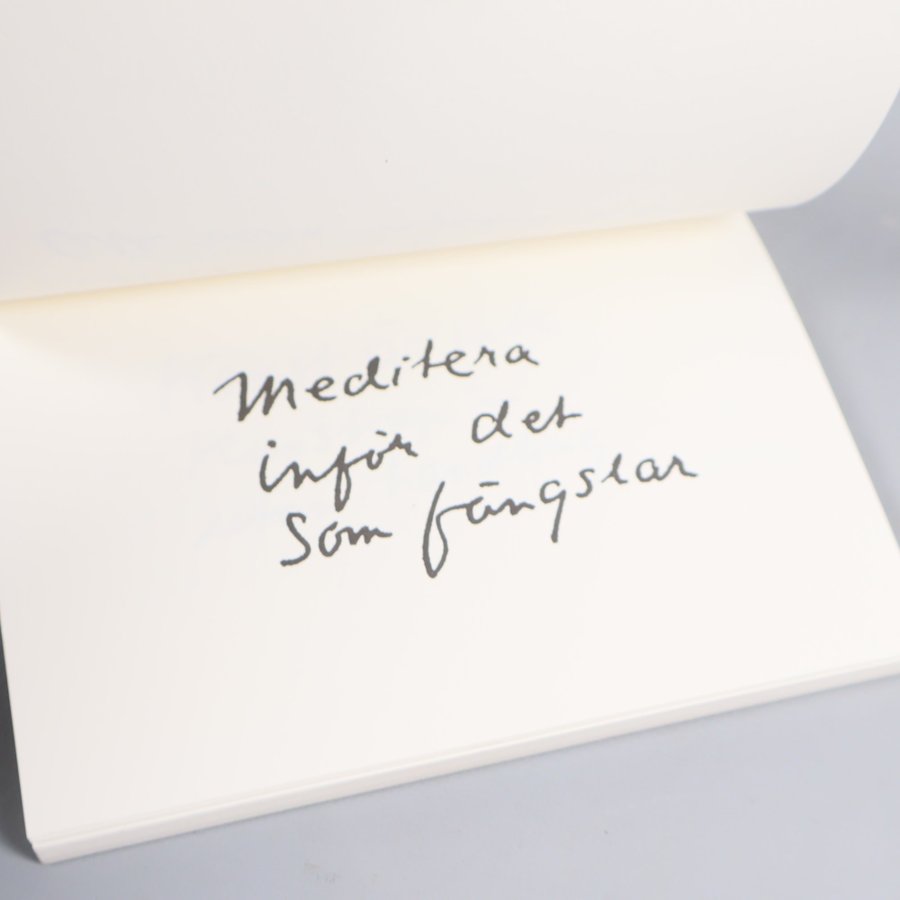 Meditera
inför det
som fängslar